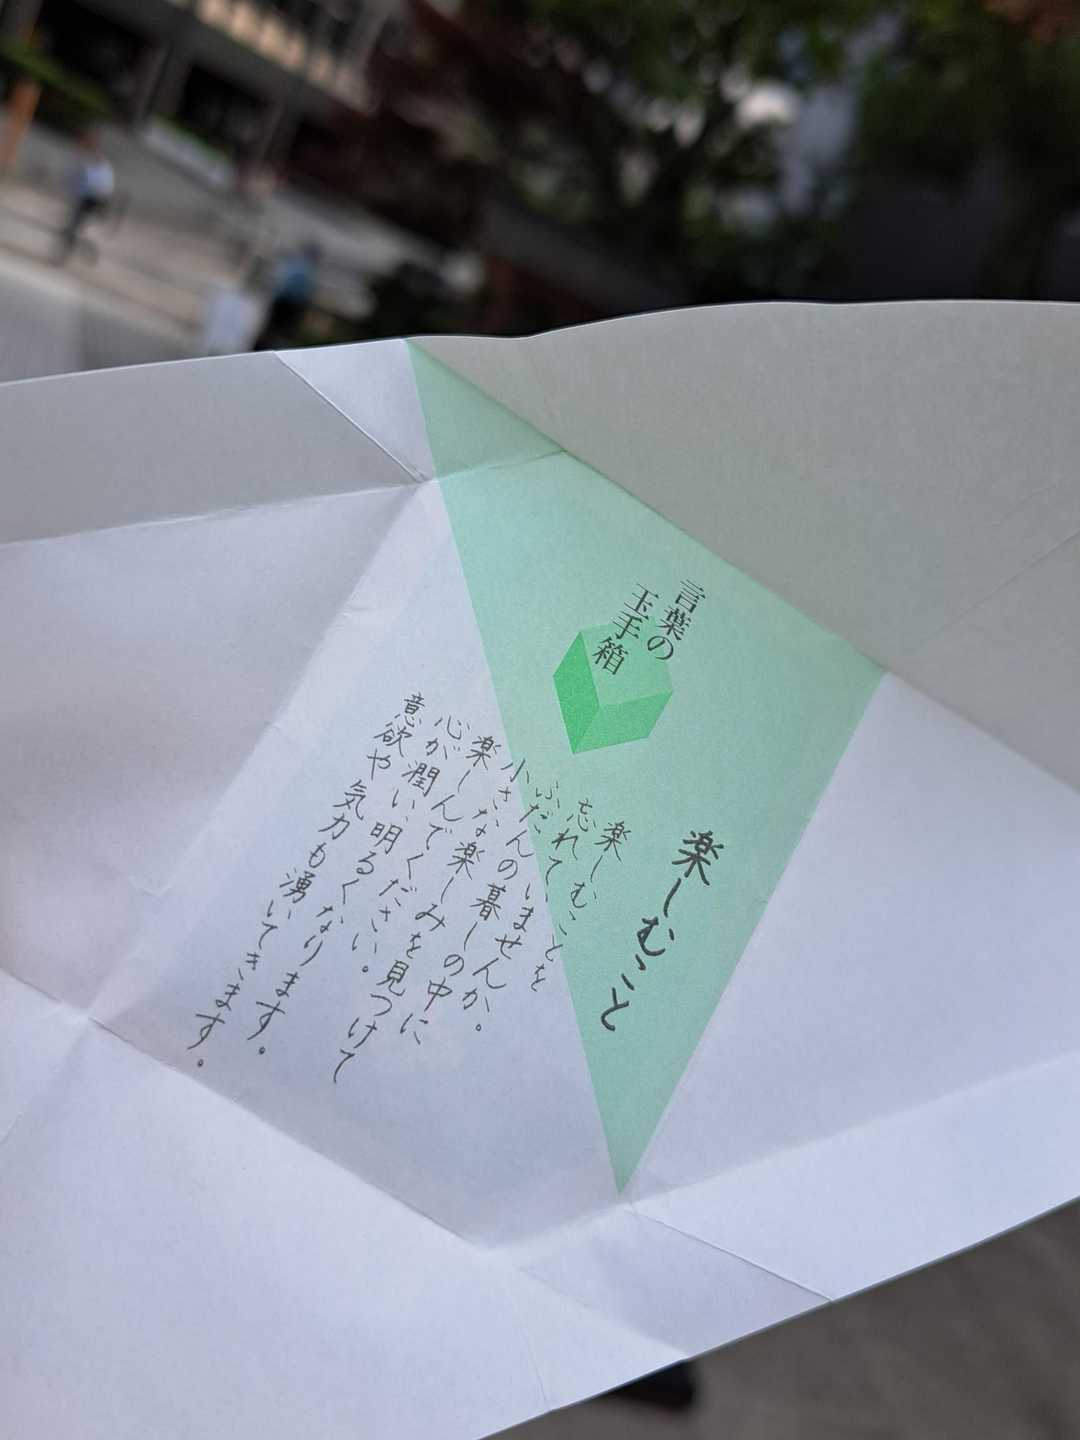 言葉の
玉手箱
楽しむこと
楽しむことを
忘れていませんか。
ふだんの暮しの中に
小さな楽しみを見つけて
楽しんでください。
心が潤い、明るくなります。
意欲や気力も湧いてきます。